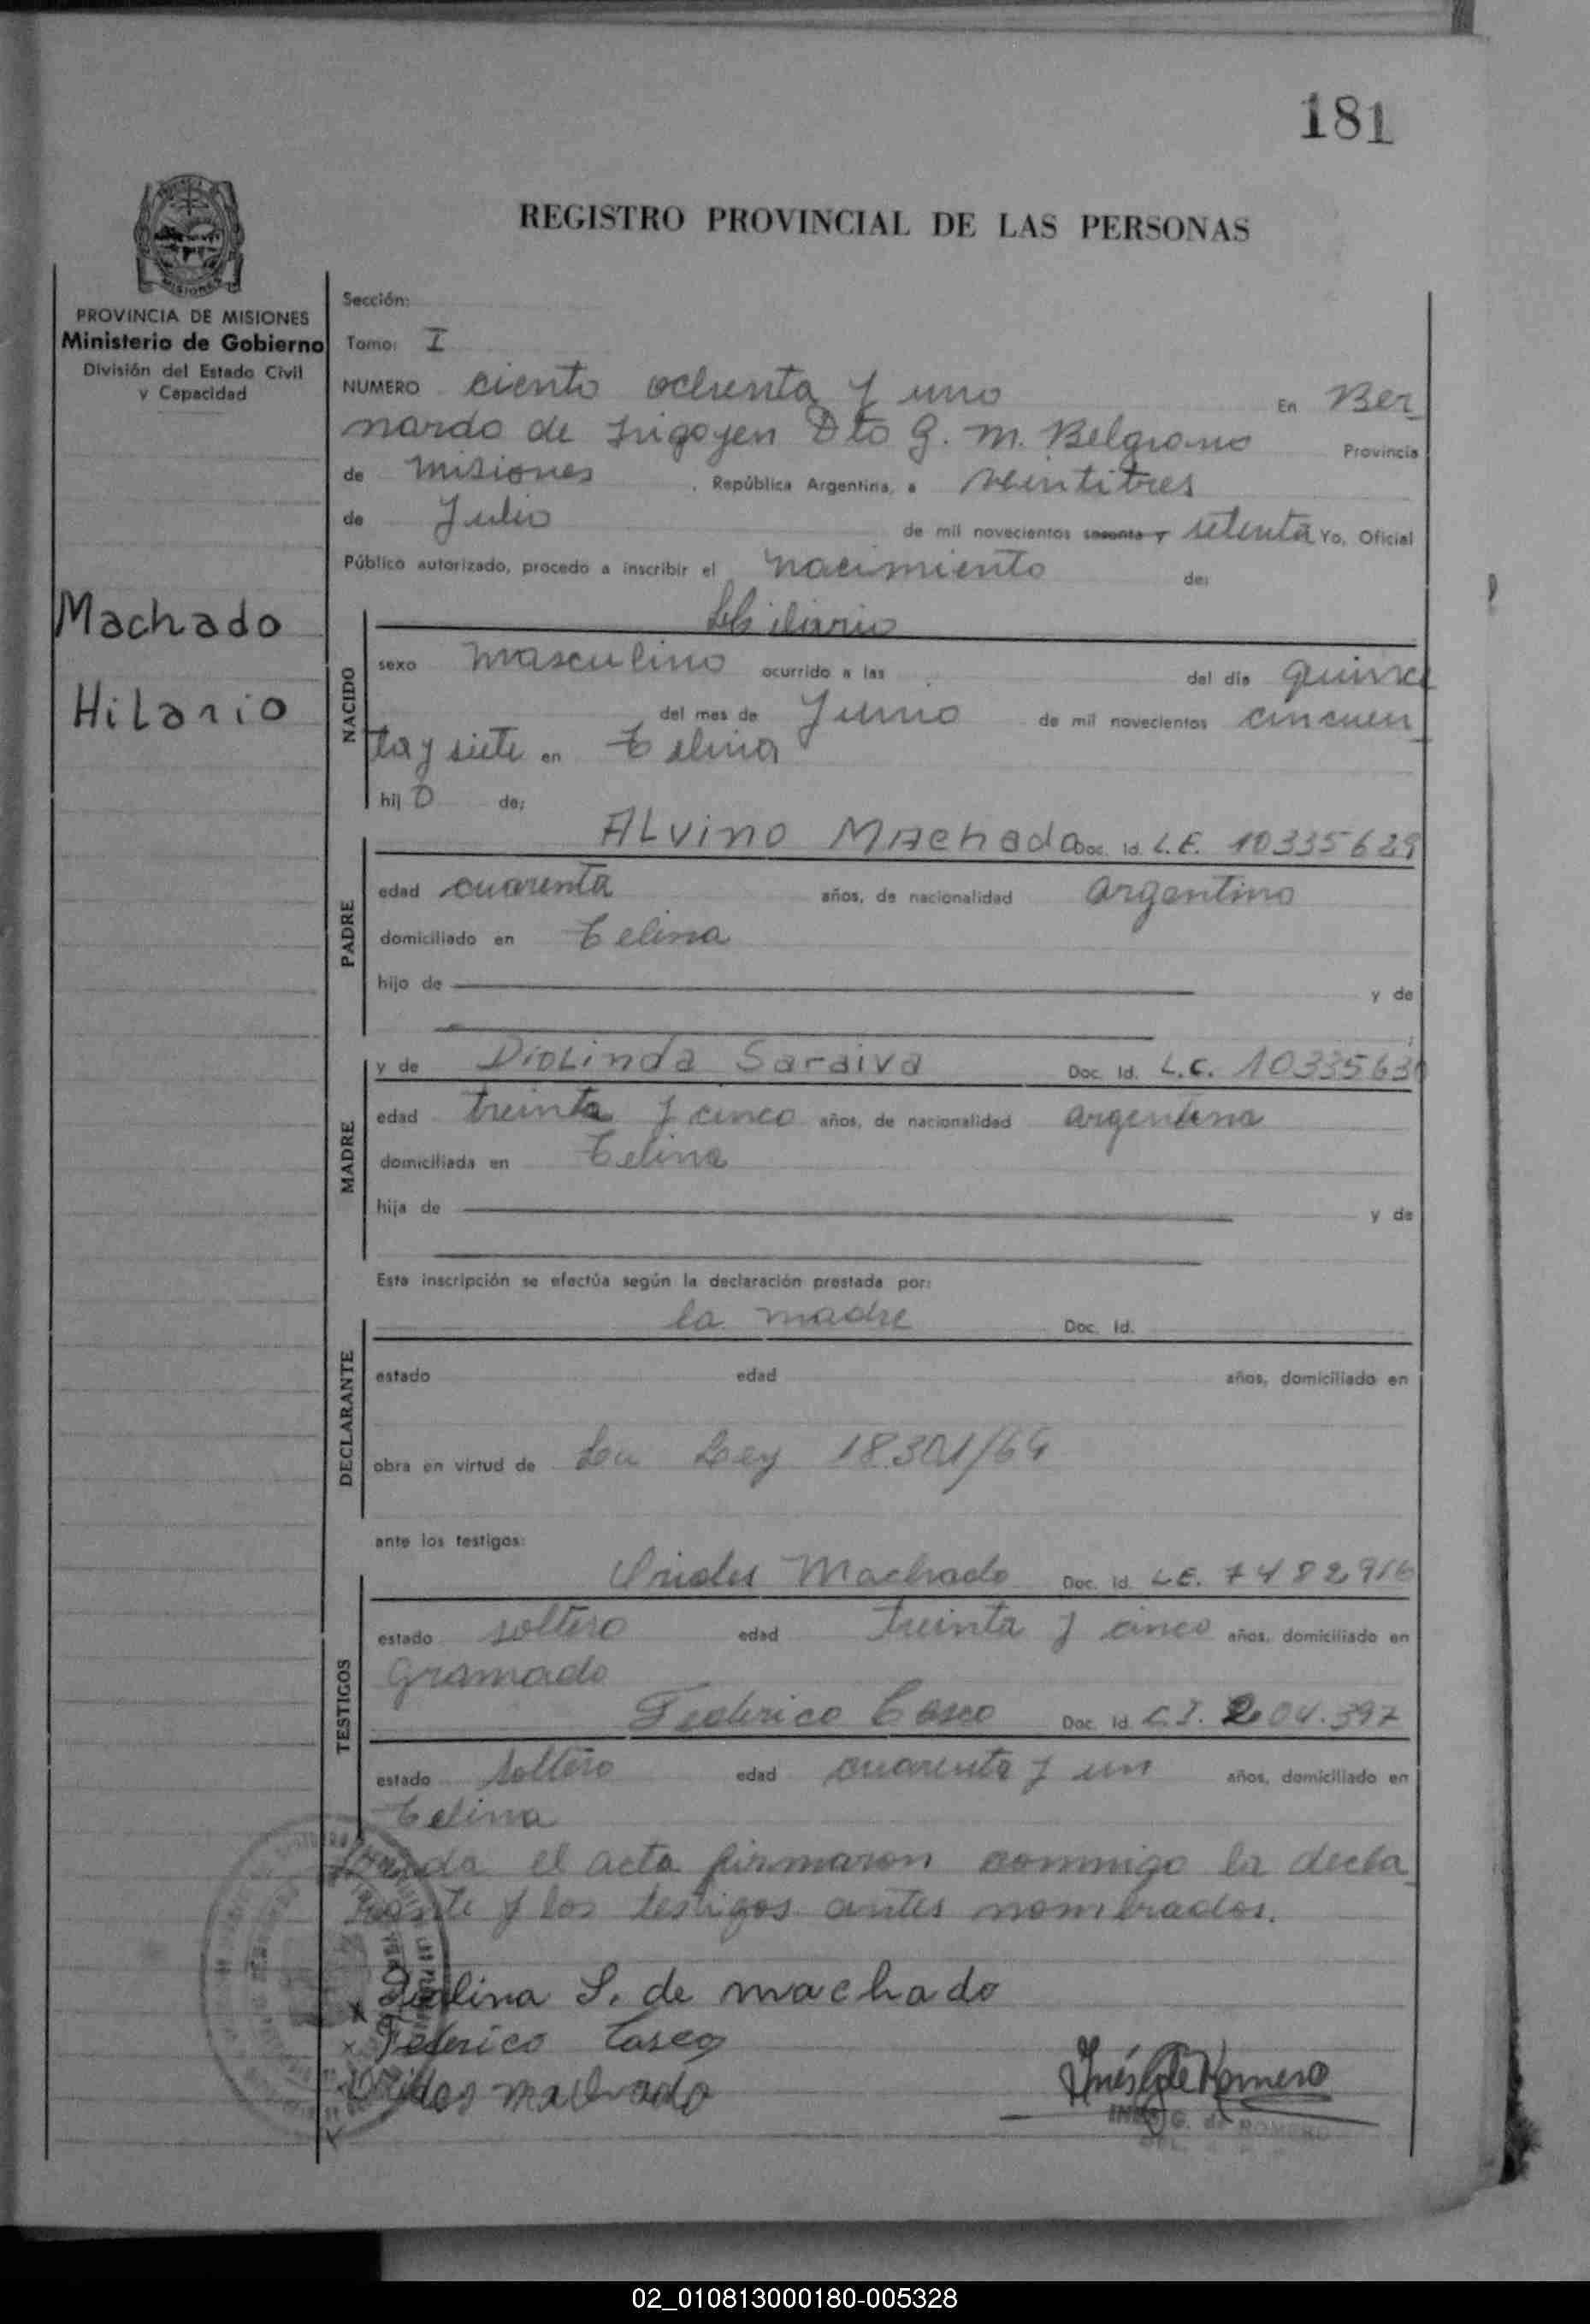 181
REGISTRO PROVINCIAL DE LAS PERSONAS
MISIONES
PROVINCIA DE MISIONES
Ministerio de Gobierno
División del Estado Civil
y Capacidad
Machado
Hilario
Sección:
Tomo: I
NUMERO ciento ochenta y uno En Ber
nardo de Irigoyen Dto G. M. Belgrano Provincia
de Misiones , República Argentina, a veintitres
de Julio de mil novecientos sesenta y setenta Yo, Oficial
Público autorizado, procedo a inscribir el nacimiento de:
Hilario
NACIDO
sexo masculino ocurrido a las del día quince
del mes de Junio de mil novecientos cincuen
ta y siete en Celina
hij o de:
ALvino Machado Doc. Id. L.E. 10335629
PADRE
edad cuarenta años, de nacionalidad argentino
domiciliado en Celina
hijo de y de
y de DioLinda Saraiva Doc. Id. L.C. 1033563
MADRE
edad treinta y cinco años, de nacionalidad argentina
domiciliada en Celina
hija de y de
Esta inscripción se efectúa según la declaración prestada por:
la madre Doc. Id.
DECLARANTE
estado edad años, domiciliado en
obra en virtud de La Ley 18.301/69
ante los testigos:
Machado Doc. Id. L.E. 7482916
TESTIGOS
estado soltero edad treinta y cinco años, domiciliado en
Gramado
Federico Casco Doc. Id. C.I. 204.397
estado soltero edad cuarenta y un años, domiciliado en
Celina
el acta firmaron conmigo la decla
rante y los testigos antes nombrados.
S. de machado
Federico Casco
machado
Inés G de Romero
INES G. de ROMERO
02_010813000180-005328